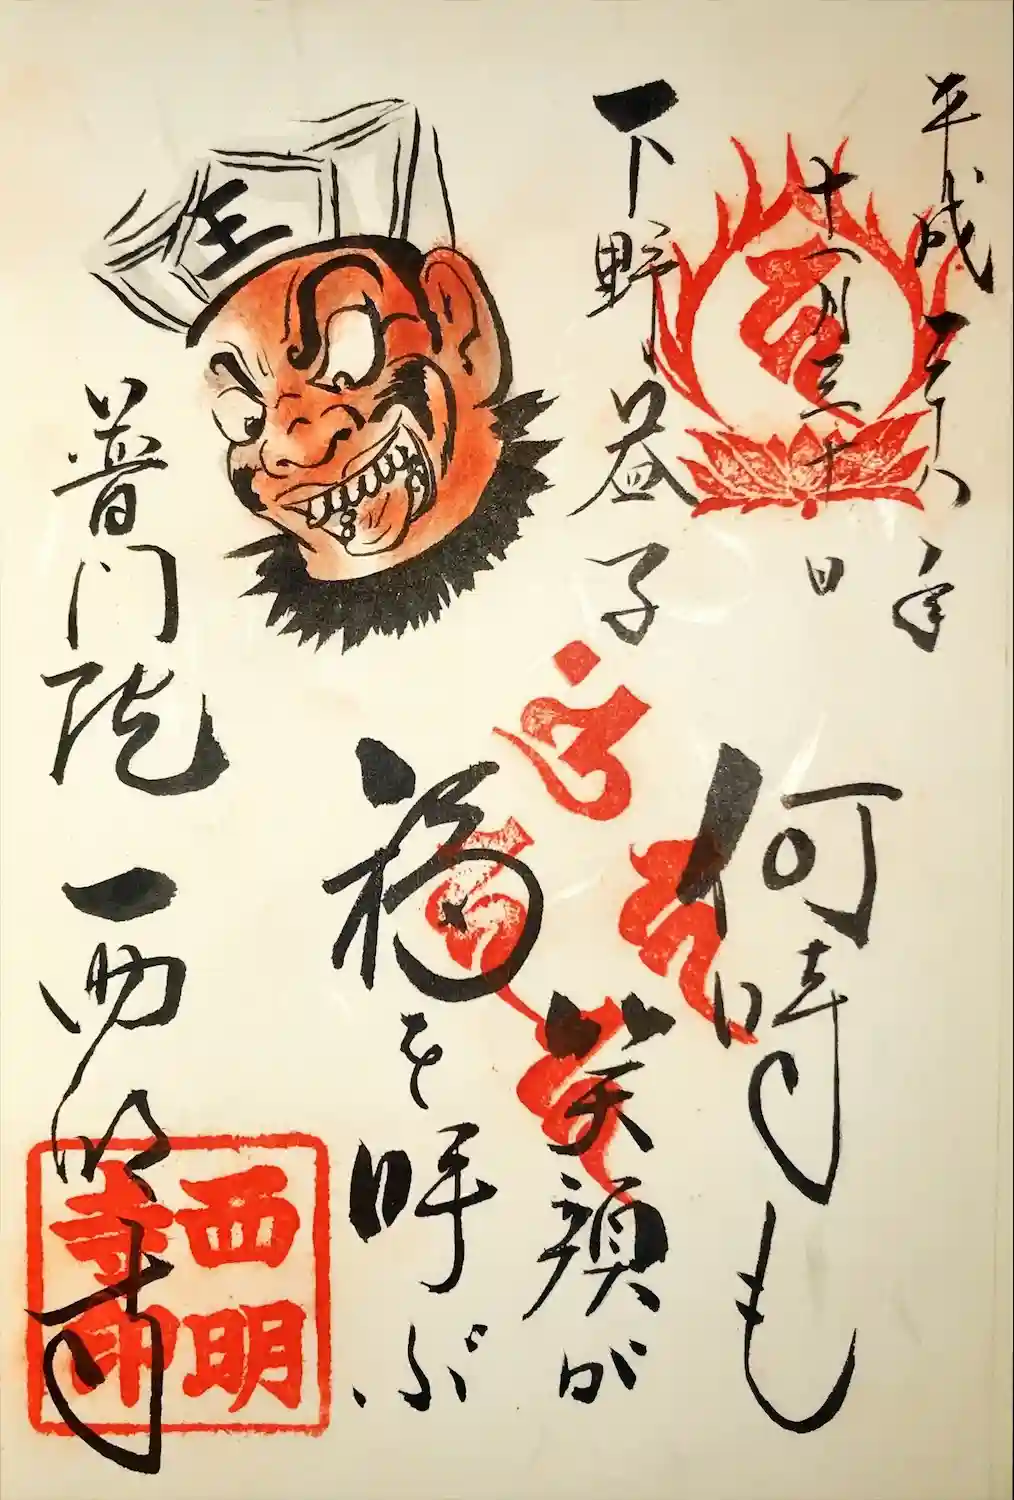 平成二十八年
十一月三十日
下野益子
王
何時も
笑顔が
福を呼ぶ
普門院 西明寺
西明
寺印